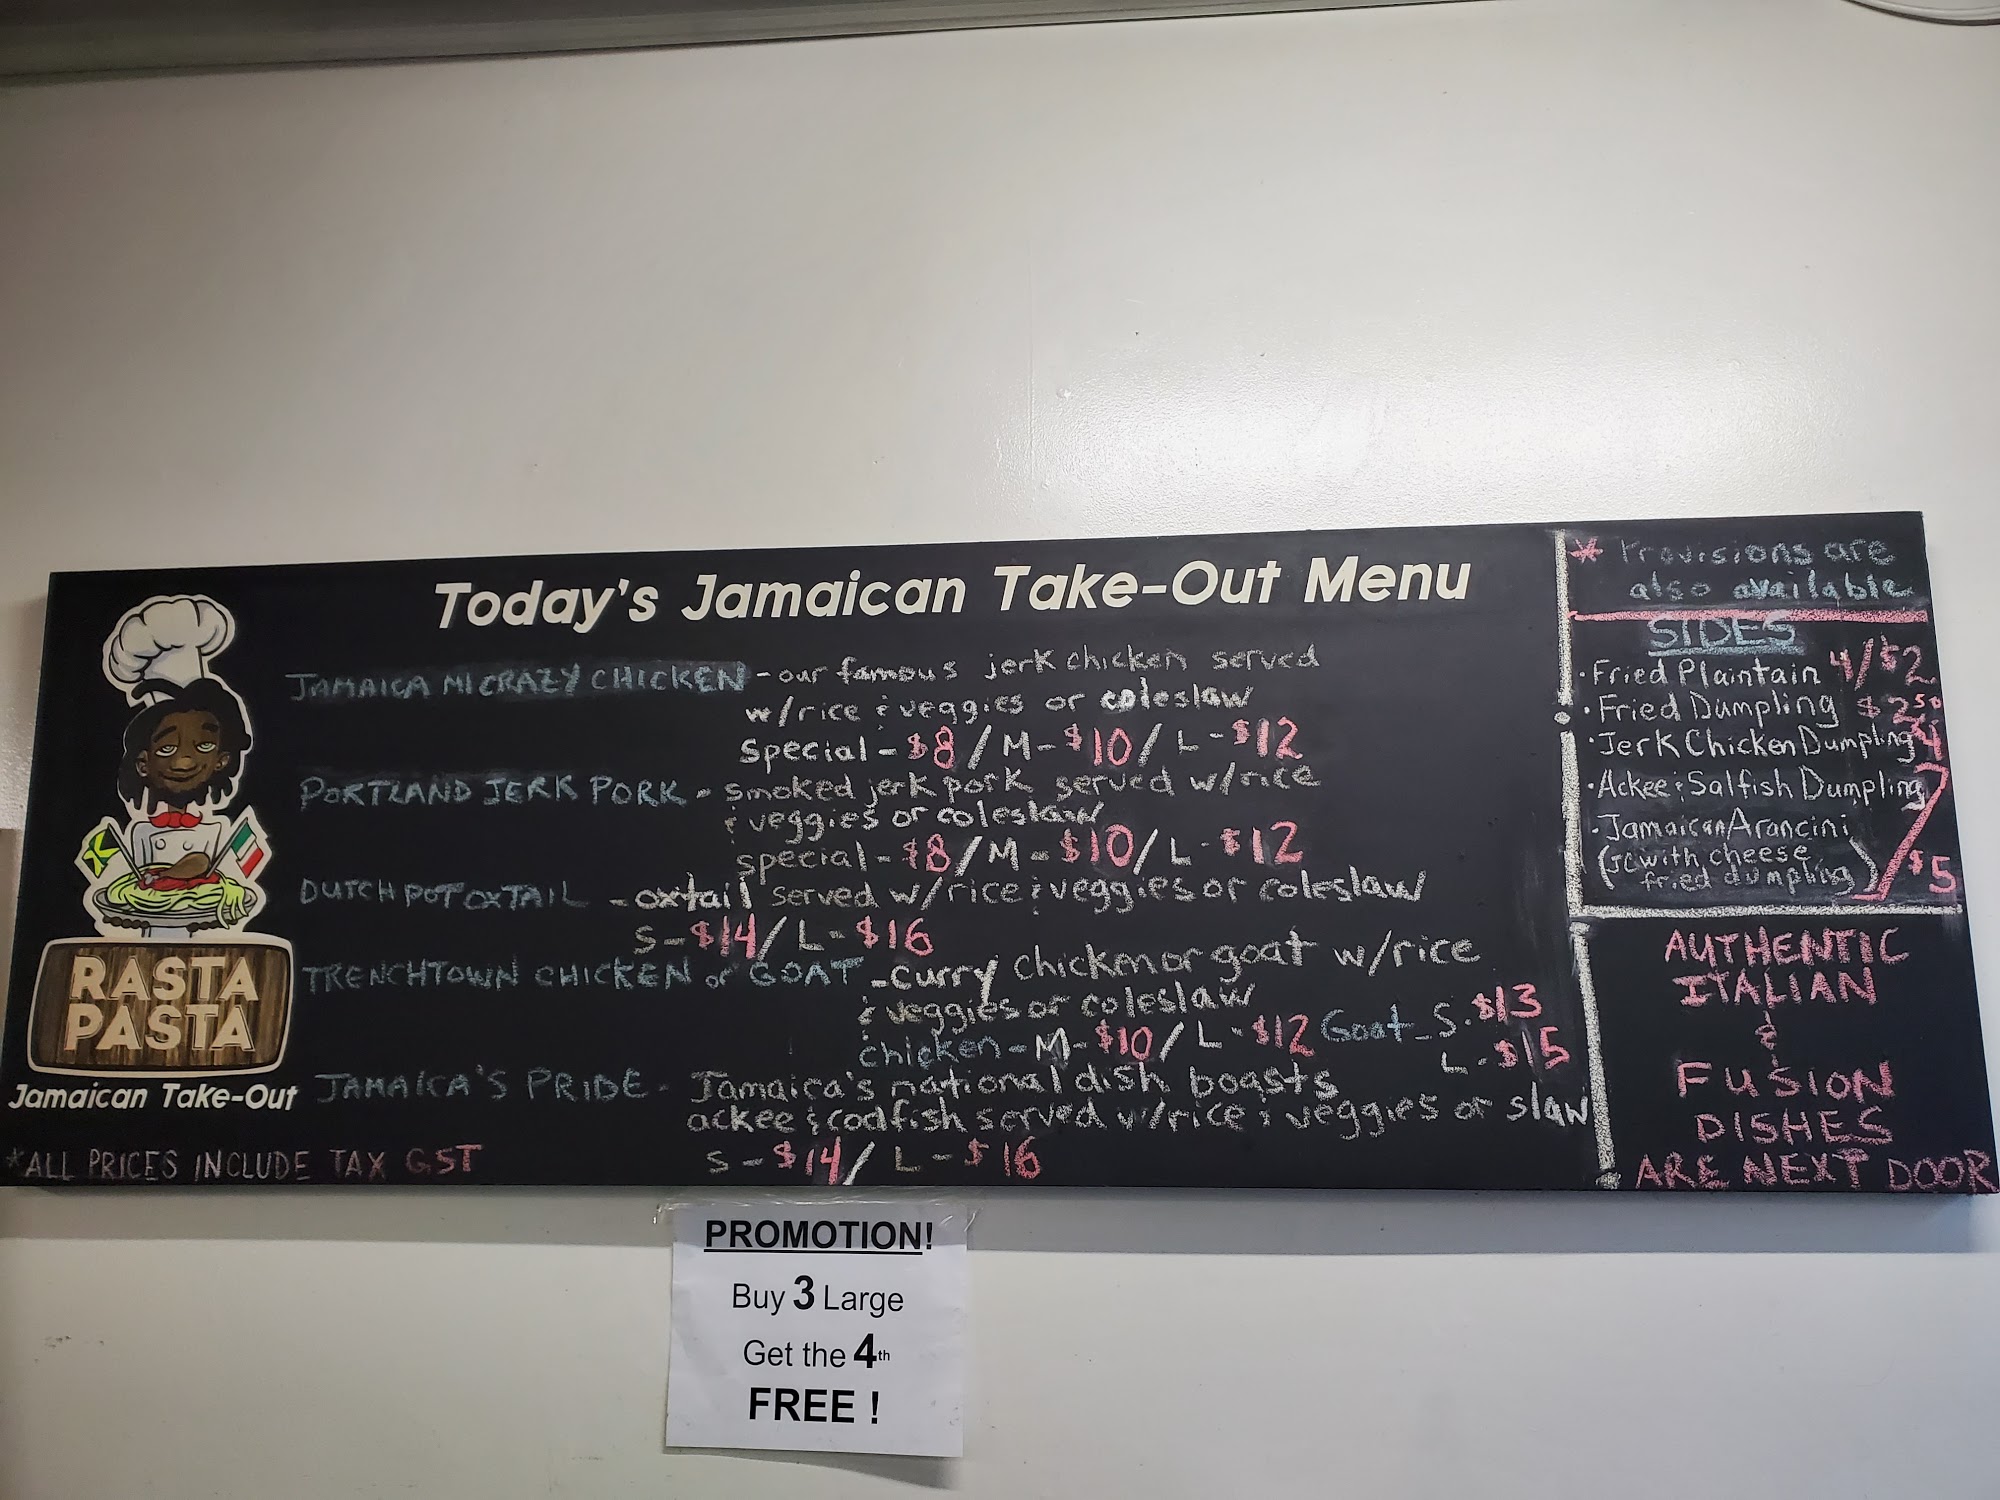 Today's Jamaican Take-Out Menu
JAMAICA MI CRAZY CHICKEN - our famous jerk chicken served
w/rice & veggies or coleslaw
Special - $8 / M - $10 / L - $12
PORTLAND JERK PORK - smoked jerk pork served w/rice
& veggies or coleslaw
special - $8 / M - $10 / L - $12
DUTCH POT OXTAIL - oxtail served w/rice & veggies or coleslaw
S - $14 / L - $16
TRENCHTOWN CHICKEN or GOAT - curry chicken or goat w/rice
& veggies or coleslaw
chicken - M - $10 / L - $12 Goat - S. $13
L - $15
JAMAICA'S PRIDE - Jamaica's national dish boasts
ackee & codfish served w/rice & veggies or slaw
S - $14 / L - $16
RASTA
PASTA
Jamaican Take-Out
*ALL PRICES INCLUDE TAX GST
* Provisions are
also available
SIDES
· Fried Plaintain 4/$2
· Fried Dumpling $2.50
· Jerk Chicken Dumpling $4
· Ackee & Salfish Dumpling
· Jamaican Arancini
(JC with cheese
fried dumpling) $5
AUTHENTIC
ITALIAN
&
FUSION
DISHES
ARE NEXT DOOR
PROMOTION!
Buy 3 Large
Get the 4th
FREE !